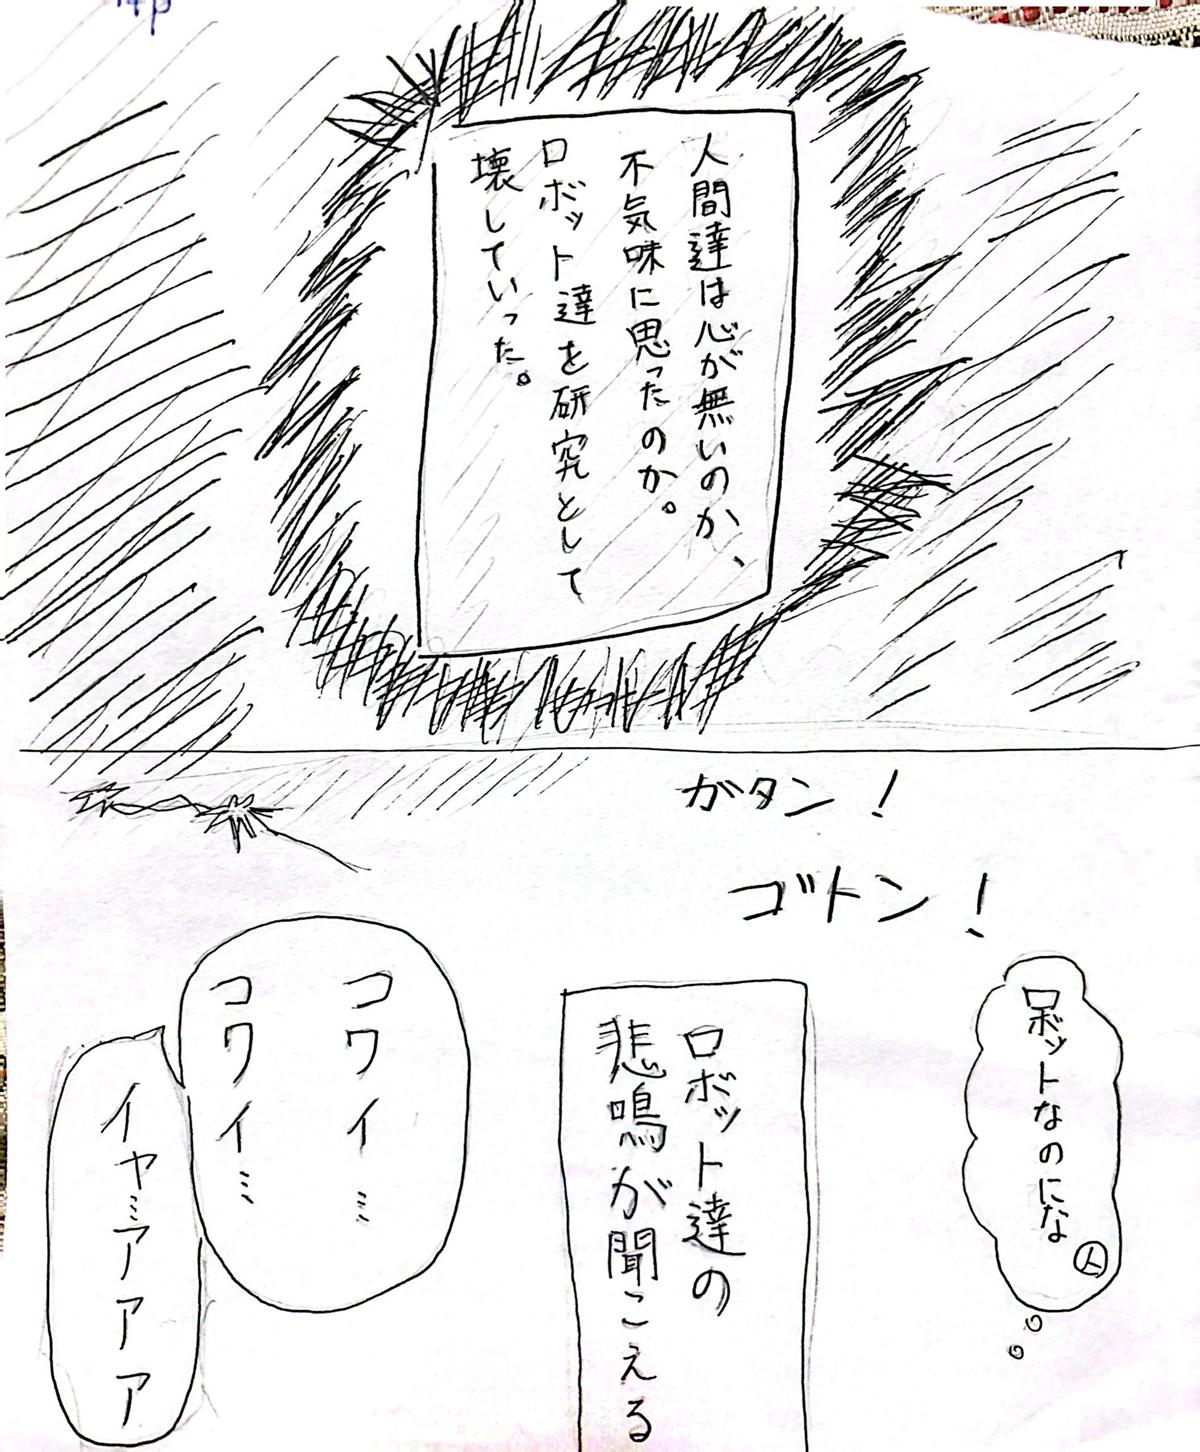 人間達は心が無いのか、
不気味に思ったのか。
ロボット達を研究として
壊していった。
ガタン！
ゴトン！
ロボットなのにな
人
ロボット達の
悲鳴が聞こえる
コワイ…
コワイ…
イヤ…アアアア